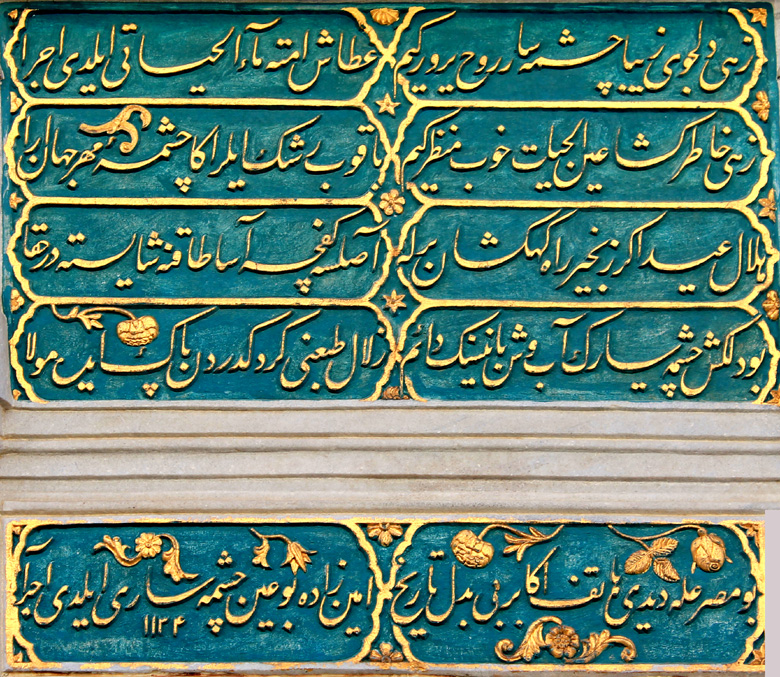 زهی دلجوی زیبا چشمه سار روح پرور کیم
عطاش امته ماء الحیاتی ایلدی اجرا
زهی خاطر کشا عین الحیات خوب منظر کیم
باقوب رشک ایلر اکا چشمۀ مهر جهان آرا
هلال عید اکر زنجیر راه کهکشان برله
آصلسه کفچه آسا طاقنه شایسته در حقا
بو دلکش چشمه سارک آب وش بانیسنک دائم
زلال طبعنی کرد کدردن پاک ایده مولا
بو مصرعله دیدی هاتف اکا بر بی بدل تاریخ
امین زاده بو عین چشمه ساری ایلدی اجرا
١١٢٤